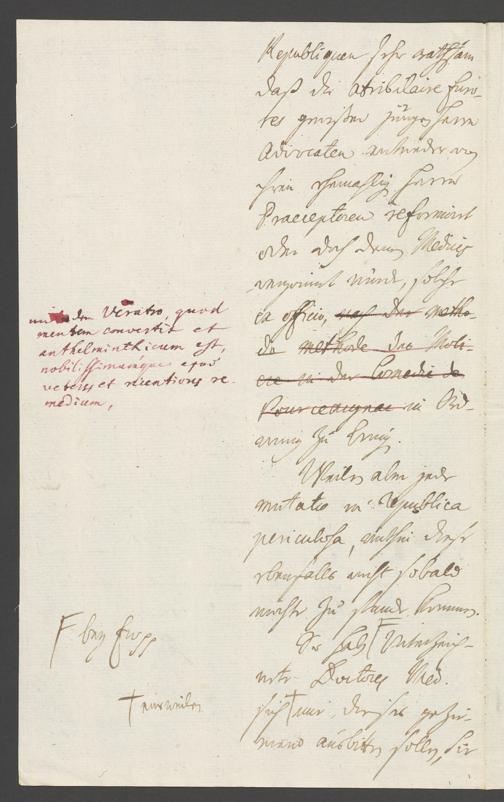 Republiquen sehr rathsam
daß die atribilaire furo-
res gewißer junger Herrn
Advocaten entweder von
ihren ehemahlig Herrn
Praeceptoren reformirt
oder doch denen Medicis
vergönnt würde, solche
ex officio, nach der metho-
de methode des Moli-
ere in der Comedie de
Pourceaugnac in Ord-
nung zu bring.
mit dem Veratro, quod
mentem convertit et
anthelminthicum est,
nobilissimumque apud
veteres et recentiores re-
medium,
Weilen aber jede
mutatio in republica
periculosa, mithin diese
ebenfalls nicht sobald
möchte zu stande kommen.
So hab Unterzeich-
nete Doctores Med.
sich nur dieses gezie-
mend ausbitten sollen, sie
F bey
† einweilen